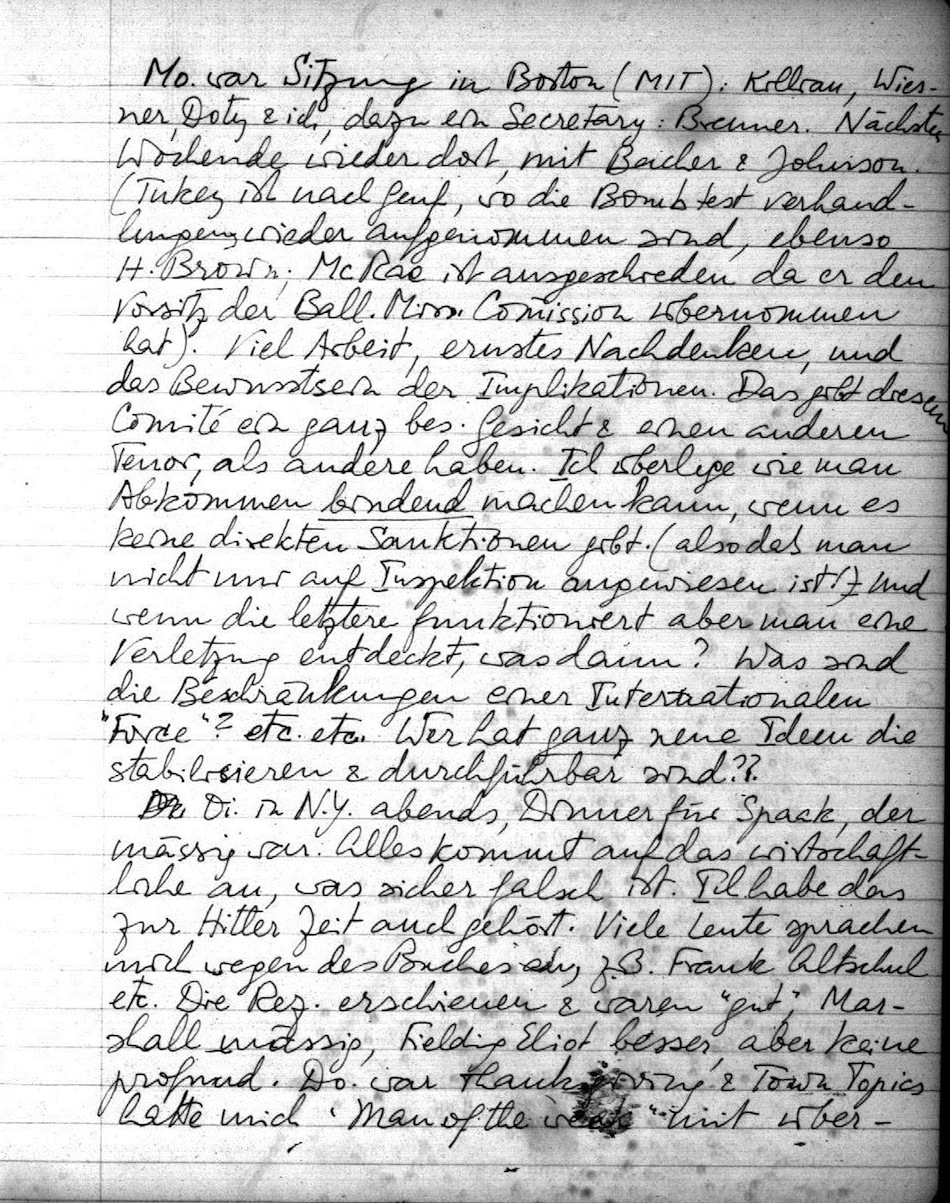 Mo. war Sitzung in Boston (MIT): Killian, Wies-
ner, Doty & ich, dazu ein Secretary: Brenner. Nächstes
Wochende wieder dort, mit Bacher & Johnson.
(Tukey ist nach Genf, wo die Bombtest verhand-
lungen wieder aufgenommen sind, ebenso
H. Brown; McRae ist ausgeschieden da er den
Vorsitz der Ball. Miss. Comission übernommen
hat). Viel Arbeit, ernstes Nachdenken, und
das Bewusstsein der Implikationen. Das gibt diesem
Comité ein ganz bes. Gesicht & einen anderen
Tenor, als andere haben. Ich überlege wie man
Abkommen bindend machen kann, wenn es
keine direkten Sanktionen gibt. (also dass man
nicht nur auf Inspektion angewiesen ist!) Und
wenn die letztere funktioniert aber man eine
Verletzung entdeckt, was dann? Was sind
die Beschränkungen einer Internationalen
"Force"? etc. etc. Wer hat ganz neue Ideen die
stabilisieren & durchführbar sind??
Di. in N.Y. abends, Dinner für Spaak, der
mässig war. Alles kommt auf das wirtschaft-
liche an, was sicher falsch ist. Ich habe das
zur Hitler Zeit auch gehört. Viele Leute sprachen
mich wegen des Buches an, z.B. Frank Altschul
etc. Die Rez. erschienen & waren "gut", Mar-
shall mässig, Fielding Eliot besser, aber keine
profund. Do. war Thanksgiving & Town Topics
hatte mich "Man of the week" mit über-